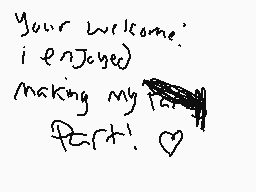 Your welcome!
i enjoyed
making my
Part! ♡